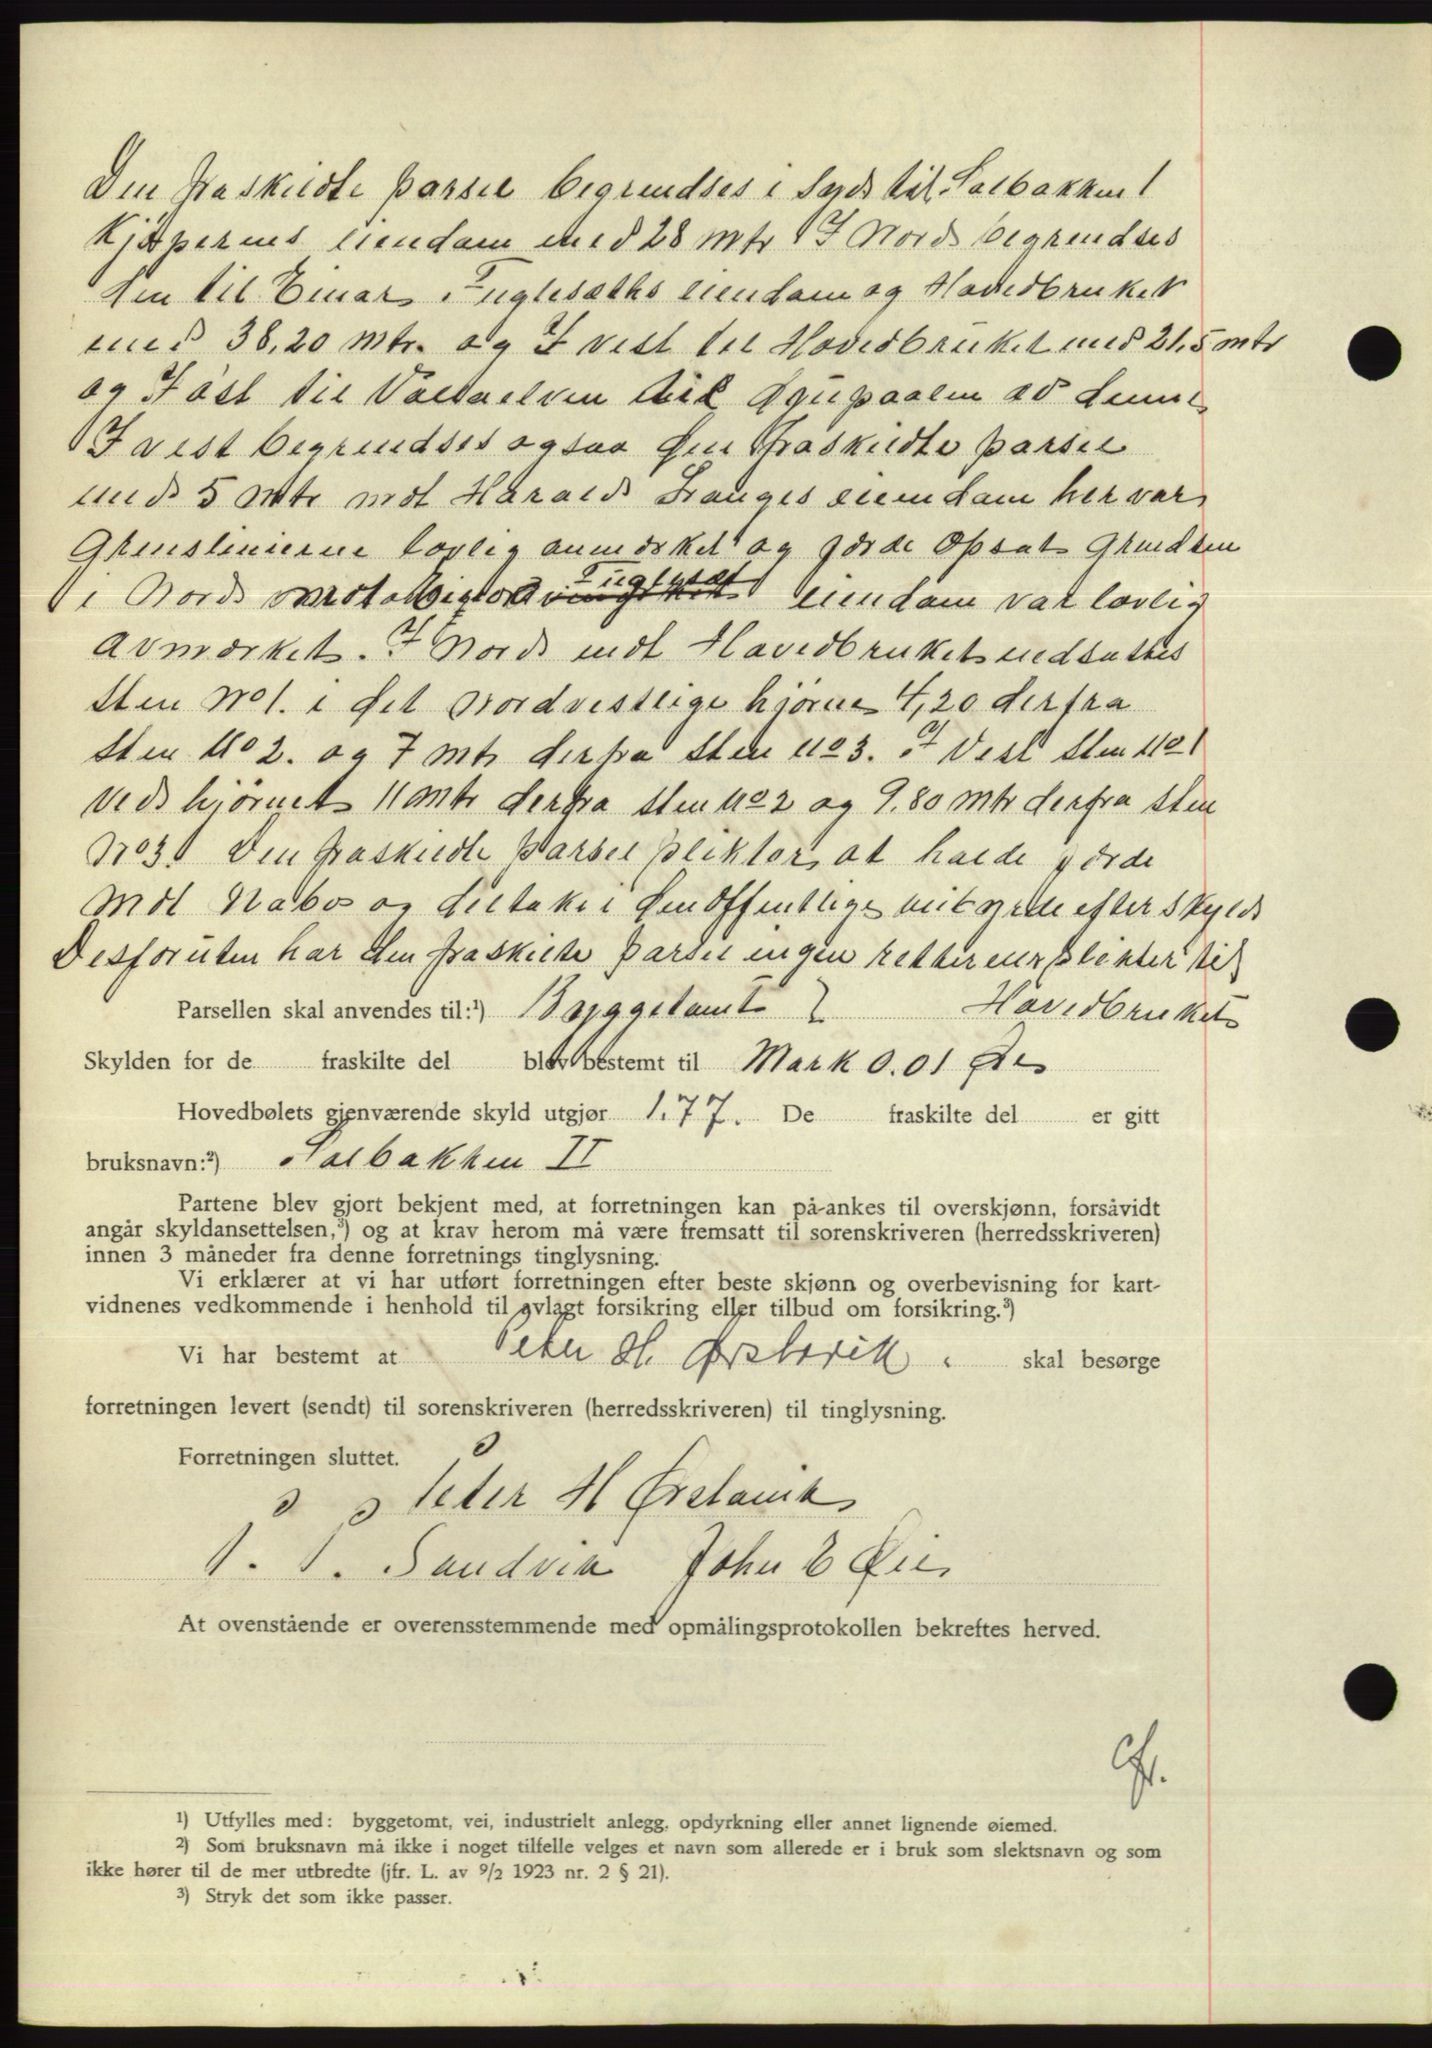 Den fraskildte parsel begrendses i Syd til Solbakken 1
Kjøperens eiendom med 28 mtr I Nord begrendses
den til Einar Fuglesæths eiendom og Hovedbruket
med 38,20 mtr. og I vest til Hovedbruket med 21,5 mtr
og I øst til til av denne
I vest begrendses ogsaa den fraskildte parsel
med 5 mtr mot Harald eiendom her var
Grenslinierne lovlig anmerket og gjerde opsat Grendsen
i Nord mot Fuglesæt eiendom var lovlig
avmerket. I Nord mot Hovedbruket nedsattes
Sten No 1. i det Nordvestlige hjørne 4,20 derfra
Sten No 2. og 7 mtr derfra Sten No 3. I Vest Sten No 1
ved hjørnet 11 mtr derfra sten No 2 og 9.80 mtr derfra sten
No 3. Den fraskildte parsel plikter at holde gjerde
mot Nabo og deltake i den offentlige efter skyld
Desforuten har den fraskilte parsel ingen retter eller plikter til
Hovedbruket
Parsellen skal anvendes til:¹) Byggetomt
Skylden for de fraskilte del blev bestemt til Mark 0.01 Øre
Hovedbølets gjenværende skyld utgjør 1.77. De fraskilte del er gitt
bruksnavn:²) Solbakken II
Partene blev gjort bekjent med, at forretningen kan på-ankes til overskjønn, forsåvidt
angår skyldansettelsen,³) og at krav herom må være fremsatt til sorenskriveren (herredsskriveren)
innen 3 måneder fra denne forretnings tinglysning.
Vi erklærer at vi har utført forretningen efter beste skjønn og overbevisning for kart-
vidnenes vedkommende i henhold til avlagt forsikring eller tilbud om forsikring.³)
Vi har bestemt at Peter H. Ørstavik skal besørge
forretningen levert (sendt) til sorenskriveren (herredsskriveren) til tinglysning.
Forretningen sluttet.
Peter H Ørstavik
P. P. Sandvik John E Øie
At ovenstående er overensstemmende med opmålingsprotokollen bekreftes herved.
¹) Utfylles med: byggetomt, vei, industrielt anlegg, opdyrkning eller annet lignende øiemed.
²) Som bruksnavn må ikke i noget tilfelle velges et navn som allerede er i bruk som slektsnavn og som
ikke hører til de mer utbredte (jfr. L. av 9/2 1923 nr. 2 § 21).
³) Stryk det som ikke passer.